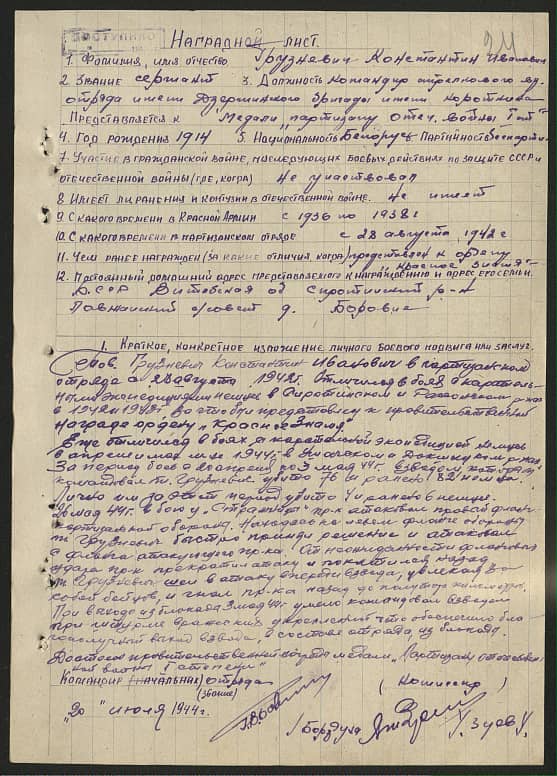 ПОСТУПИЛО
211
НАГРАДНОЙ ЛИСТ.
1. Фамилия, имя отчество Грузневич Константин Иванович
2. Звание сержант 3. Должность командир стрелкового взв.
отряда имени Дзержинского бригады имени Короткина
Представляется к Медали "партизану Отеч. войны
4. Год рождения 1914 5. Национальность Белорус Партийность беспарт
7. Участие в гражданской войне, последующих боевых действиях по защите СССР и
отечественной войны (где, когда) Не участвовал
8. Имеет ли ранения и контузии в отечественной войне. Не имеет
9. С какого времени в Красной Армии с 1936 по 1938 г
10. С какого времени в партизанском отряде с 28 августа 1942 г
11. Чем ранее награжден (за какие отличия, когда) представлен к ордену
"Красное знамя"
12. Постоянный домашний адрес представляемого к награждению и адрес его семьи.
БССР Витебская об Сиротинский р-н
с/совет д. Боровня
1. Краткое, конкретное изложение личного боевого подвига или заслуг.
Тов. Грузневич Константин Иванович в партизанском
отряде с 28 августа 1942 г. Отличился в боях с каратель-
ными экспедициями немцев в Сиротинском и р-нах
в 1942 и 1943 г. за что был представлен к правительственной
награде ордену "Красное Знамя".
Еще отличился в боях с карательной экспедицией немцев
в апреле мае м-це 1944 г. в Ушачском и Докшицком р-нах.
За период боев с апреля до 3 мая 44 г. взводом, которым
командовал т. Грузневич убито 76 и ранено 82 немца.
Лично им за этот период убито и ранено немцев.
мая 44 г. в бою у пр-к атаковал правый фланг
партизанской обороны. Находясь на левом фланге обороны
т. Грузневич быстро принял решение и атаковал
с фланга атакующего пр-ка. От неожиданности флангового
удара пр-к прекратил атаку и покатился назад
т. Грузневич шел в атаку впереди взвода, увлекая за
собой бойцов, и гнал пр-ка назад до полтора километра.
При выходе из блокады 3 мая 44 г умело командовал взводом
при штурме вражеских укреплений что обеспечило бла-
гополучный выход взвода, в составе отряда, из блокады.
Достоин правительственной награды медали "Партизану отечествен-
ной войны" степени"
Командир (начальник) отряда (Комиссар)
(звание)
"20" июля 1944 г. /Бордуха / Зуев/